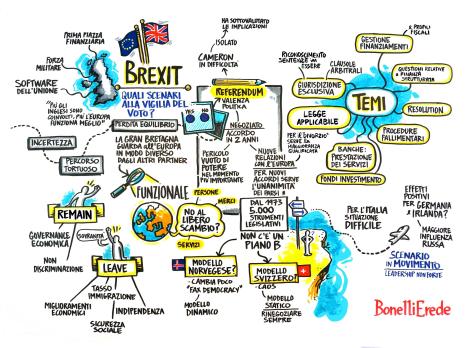 PRIMA PIAZZA
FINANZIARIA
FORZA
MILITARE
SOFTWARE
DELL'UNIONE
"PIÙ GLI
INGLESI SONO
COINVOLTI, PIÙ L'EUROPA
FUNZIONA MEGLIO"
BREXIT
QUALI SCENARI
ALLA VIGILIA DEL
VOTO?
PERDITA EQUILIBRIO
LA GRAN BRETAGNA
GUARDA ALL'EUROPA
IN MODO DIVERSO
DAGLI ALTRI PARTNER
INCERTEZZA
PERCORSO
TORTUOSO
HA SOTTOVALUTATO
LE IMPLICAZIONI
ISOLATO
CAMERON
IN DIFFICOLTÀ
REFERENDUM
VALENZA
POLITICA
NEGOZIATO
ACCORDO
IN 2 ANNI
PERICOLO
VUOTO DI
POTERE
NEL MOMENTO
PIÙ IMPORTANTE
NUOVE
RELAZIONI
CON L'EUROPA
PER NUOVI
ACCORDI SERVE
L'UNANIMITÀ
DEI PAESI
RICONOSCIMENTO
SENTENZE IN
ESSERE
CLAUSOLE
ARBITRALI
GIURISDIZIONE
ESCLUSIVA
LEGGE
APPLICABILE
TEMI
GESTIONE
FINANZIAMENTI
PROFILI
FISCALI
QUESTIONI RELATIVE
A FINANZA
STRUTTURATA
RESOLUTION
PROCEDURE
FALLIMENTARI
BANCHE:
PRESTAZIONE
DEI SERVIZI
FONDI INVESTIMENTO
FUNZIONALE
PERSONE
MERCI
SERVIZI
NO AL
LIBERO
SCAMBIO?
DAL 1973
5.000
STRUMENTI
LEGISLATIVI
NON C'È UN
PIANO B
REMAIN
GOVERNANCE
ECONOMICA
SOVRANITÀ
NON
DISCRIMINAZIONE
LEAVE
TASSO
IMMIGRAZIONE
MIGLIORAMENTI
ECONOMICI
INDIPENDENZA
SICUREZZA
SOCIALE
MODELLO
NORVEGESE?
CAMBIA POCO
"FAX DEMOCRACY"
MODELLO
DINAMICO
MODELLO
SVIZZERO?
CAOS
MODELLO
STATICO
RINEGOZIARE
SEMPRE
PER L'ITALIA
SITUAZIONE
DIFFICILE
EFFETTI
POSITIVI PER
GERMANIA
IRLANDA?
MAGGIORE
INFLUENZA
RUSSA
SCENARIO
IN MOVIMENTO
LEADERSHIP NON FORTE
BonelliErede